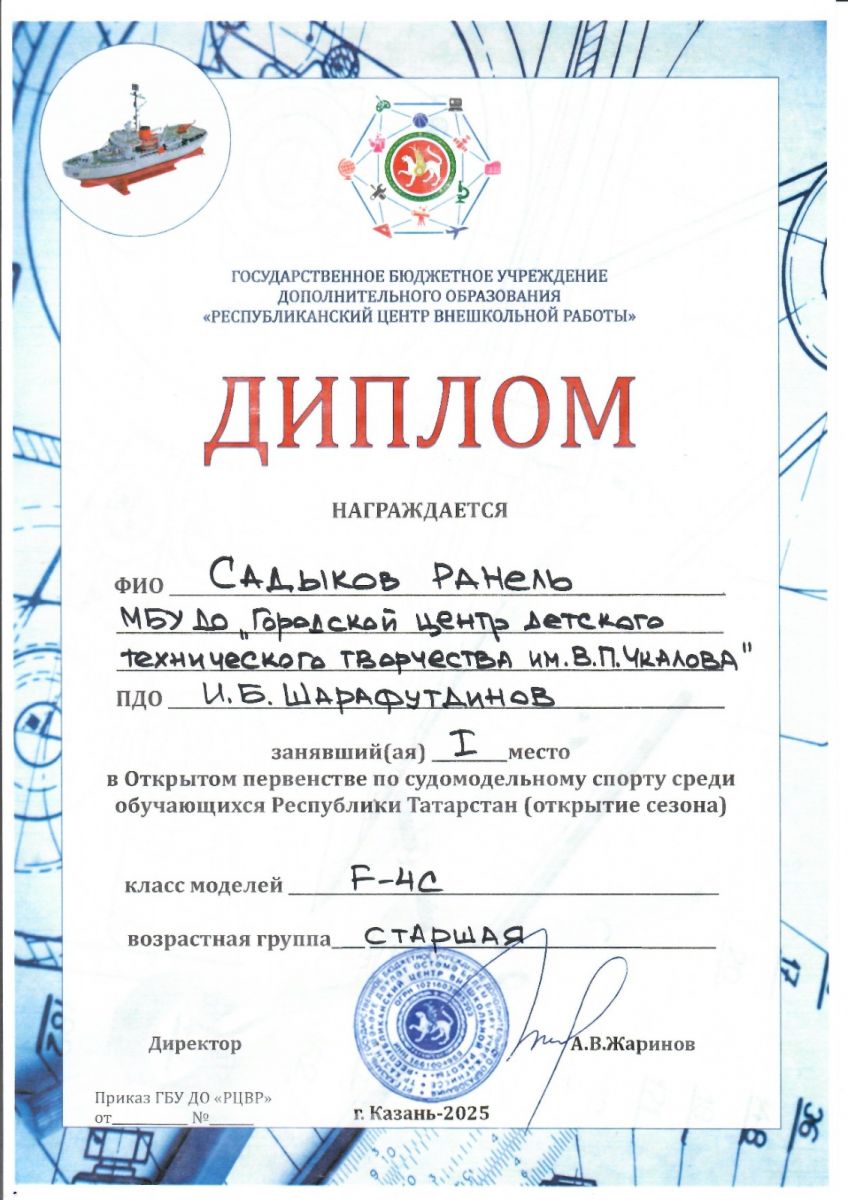 ГОСУДАРСТВЕННОЕ БЮДЖЕТНОЕ УЧРЕЖДЕНИЕ
ДОПОЛНИТЕЛЬНОГО ОБРАЗОВАНИЯ
«РЕСПУБЛИКАНСКИЙ ЦЕНТР ВНЕШКОЛЬНОЙ РАБОТЫ»
ДИПЛОМ
НАГРАЖДАЕТСЯ
ФИО Садыков Ранель
МБУ ДО „Городской центр детского
технического творчества им. В.П. Чкалова"
ПДО И.Б. Шарафутдинов
занявший(ая) I место
в Открытом первенстве по судомодельному спорту среди
обучающихся Республики Татарстан (открытие сезона)
класс моделей F-4C
возрастная группа старшая
Директор А.В.Жаринов
Приказ ГБУ ДО «РЦВР»
от__________ №______
г. Казань-2025